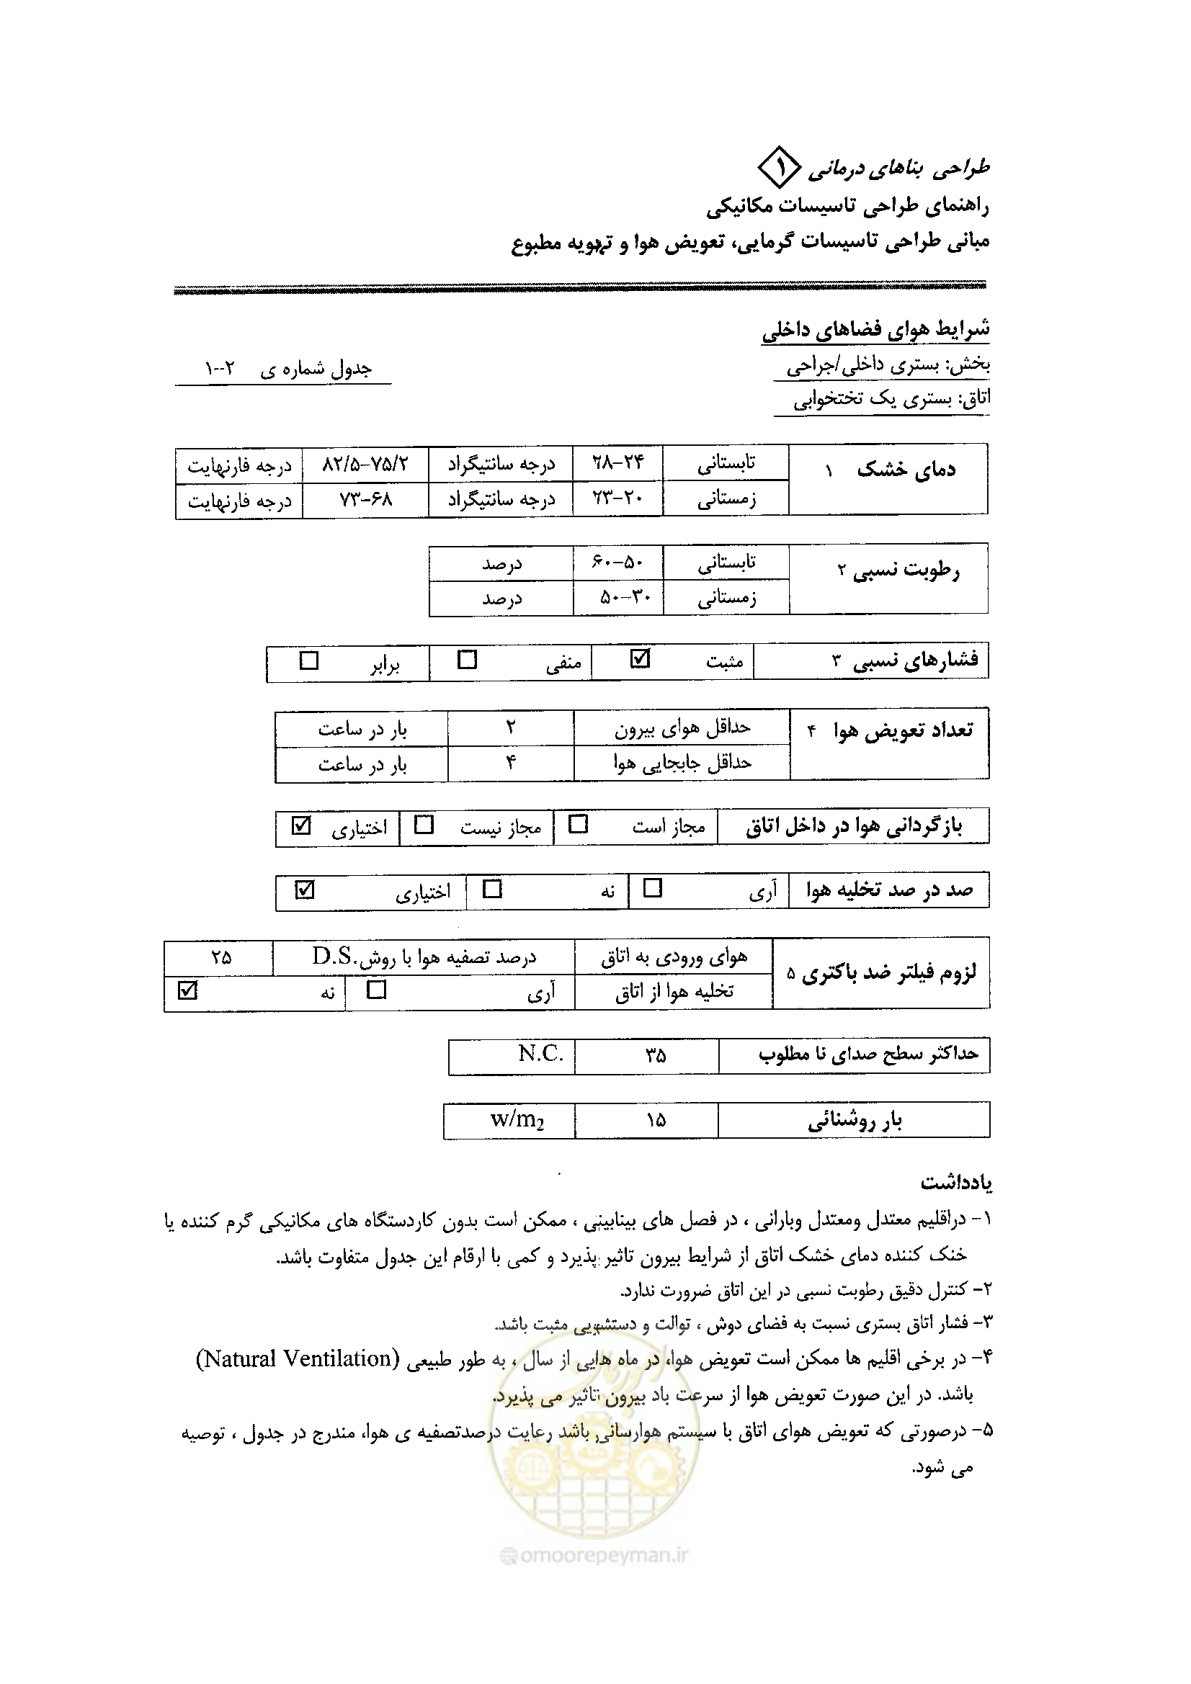 طراحی بناهای درمانی ۱
راهنمای طراحی تاسیسات مکانیکی
مبانی طراحی تاسیسات گرمایی، تعویض هوا و تهویه مطبوع
شرایط هوای فضاهای داخلی
بخش: بستری داخلی/جراحی
جدول شماره ی ۲--۱
اتاق: بستری یک تختخوابی
دمای خشک ۱
تابستانی ۲۴-۲۸ درجه سانتیگراد ۷۵/۲-۸۲/۵ درجه فارنهایت
زمستانی ۲۰-۲۳ درجه سانتیگراد ۶۸-۷۳ درجه فارنهایت
رطوبت نسبی ۲
تابستانی ۵۰-۶۰ درصد
زمستانی ۳۰-۵۰ درصد
فشارهای نسبی ۳ مثبت ☑ منفی ☐ برابر ☐
تعداد تعویض هوا ۴
حداقل هوای بیرون ۲ بار در ساعت
حداقل جابجایی هوا ۴ بار در ساعت
بازگردانی هوا در داخل اتاق مجاز است ☐ مجاز نیست ☐ اختیاری ☑
صد در صد تخلیه هوا آری ☐ نه ☐ اختیاری ☑
لزوم فیلتر ضد باکتری ۵
هوای ورودی به اتاق درصد تصفیه هوا با روش D.S. ۲۵
تخلیه هوا از اتاق آری ☐ نه ☑
حداکثر سطح صدای نا مطلوب ۳۵ N.C.
بار روشنائی ۱۵ w/m2
یادداشت
۱- دراقلیم معتدل ومعتدل وبارانی ، در فصل های بینابینی ، ممکن است بدون کاردستگاه های مکانیکی گرم کننده یا
خنک کننده دمای خشک اتاق از شرایط بیرون تاثیر پذیرد و کمی با ارقام این جدول متفاوت باشد.
۲- کنترل دقیق رطوبت نسبی در این اتاق ضرورت ندارد.
۳- فشار اتاق بستری نسبت به فضای دوش ، توالت و دستشویی مثبت باشد.
۴- در برخی اقلیم ها ممکن است تعویض هوا، در ماه هایی از سال ، به طور طبیعی (Natural Ventilation)
باشد. در این صورت تعویض هوا از سرعت باد بیرون تاثیر می پذیرد.
۵- درصورتی که تعویض هوای اتاق با سیستم هوارسانی باشد رعایت درصدتصفیه ی هوا، مندرج در جدول ، توصیه
می شود.
@omoorepeyman.ir